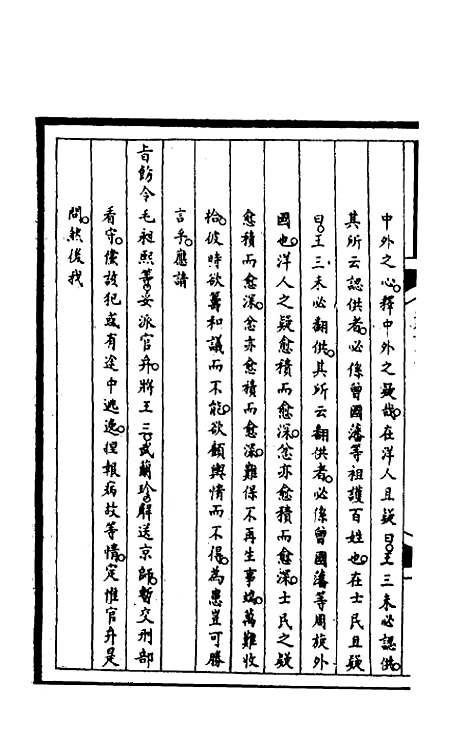 中外之心釋中外之疑哉在洋人且疑曰王三未必認供
其所云認供者必係曾國藩等袒護百姓也在士民且疑
曰王三未必翻供其所云翻供者必係曾國藩等周旋外
國也洋人之疑愈積而愈深忿亦愈積而愈深士民之疑
愈積而愈深忿亦愈積而愈深難保不再生事端萬難收
拾彼時欲籌和議而不能欲顧輿情而不得為患豈可勝
言乎應請
旨飭令毛昶熙等妥派官弁將王三武蘭珍解送京師暫交刑部
看守儻該犯或有途中逃逸捏報病故等情定惟官弁是
問然後我